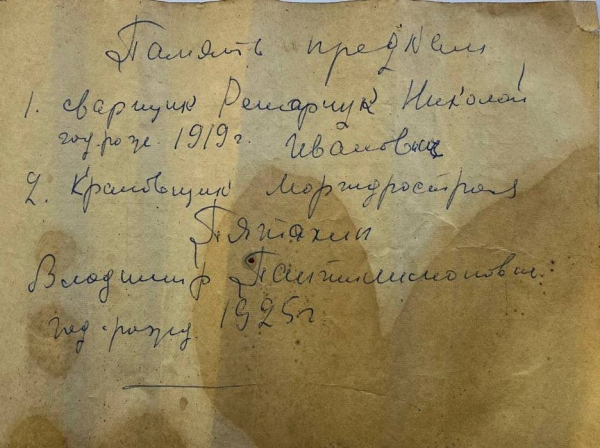 Память предкам
1. сварщик Ремарчук Николай
год рожд. 1919 г. Иванович
2. Крановщик Моргидростроя
Пятахин
Владимир Пантилимонович
год рожд. 1925 г.